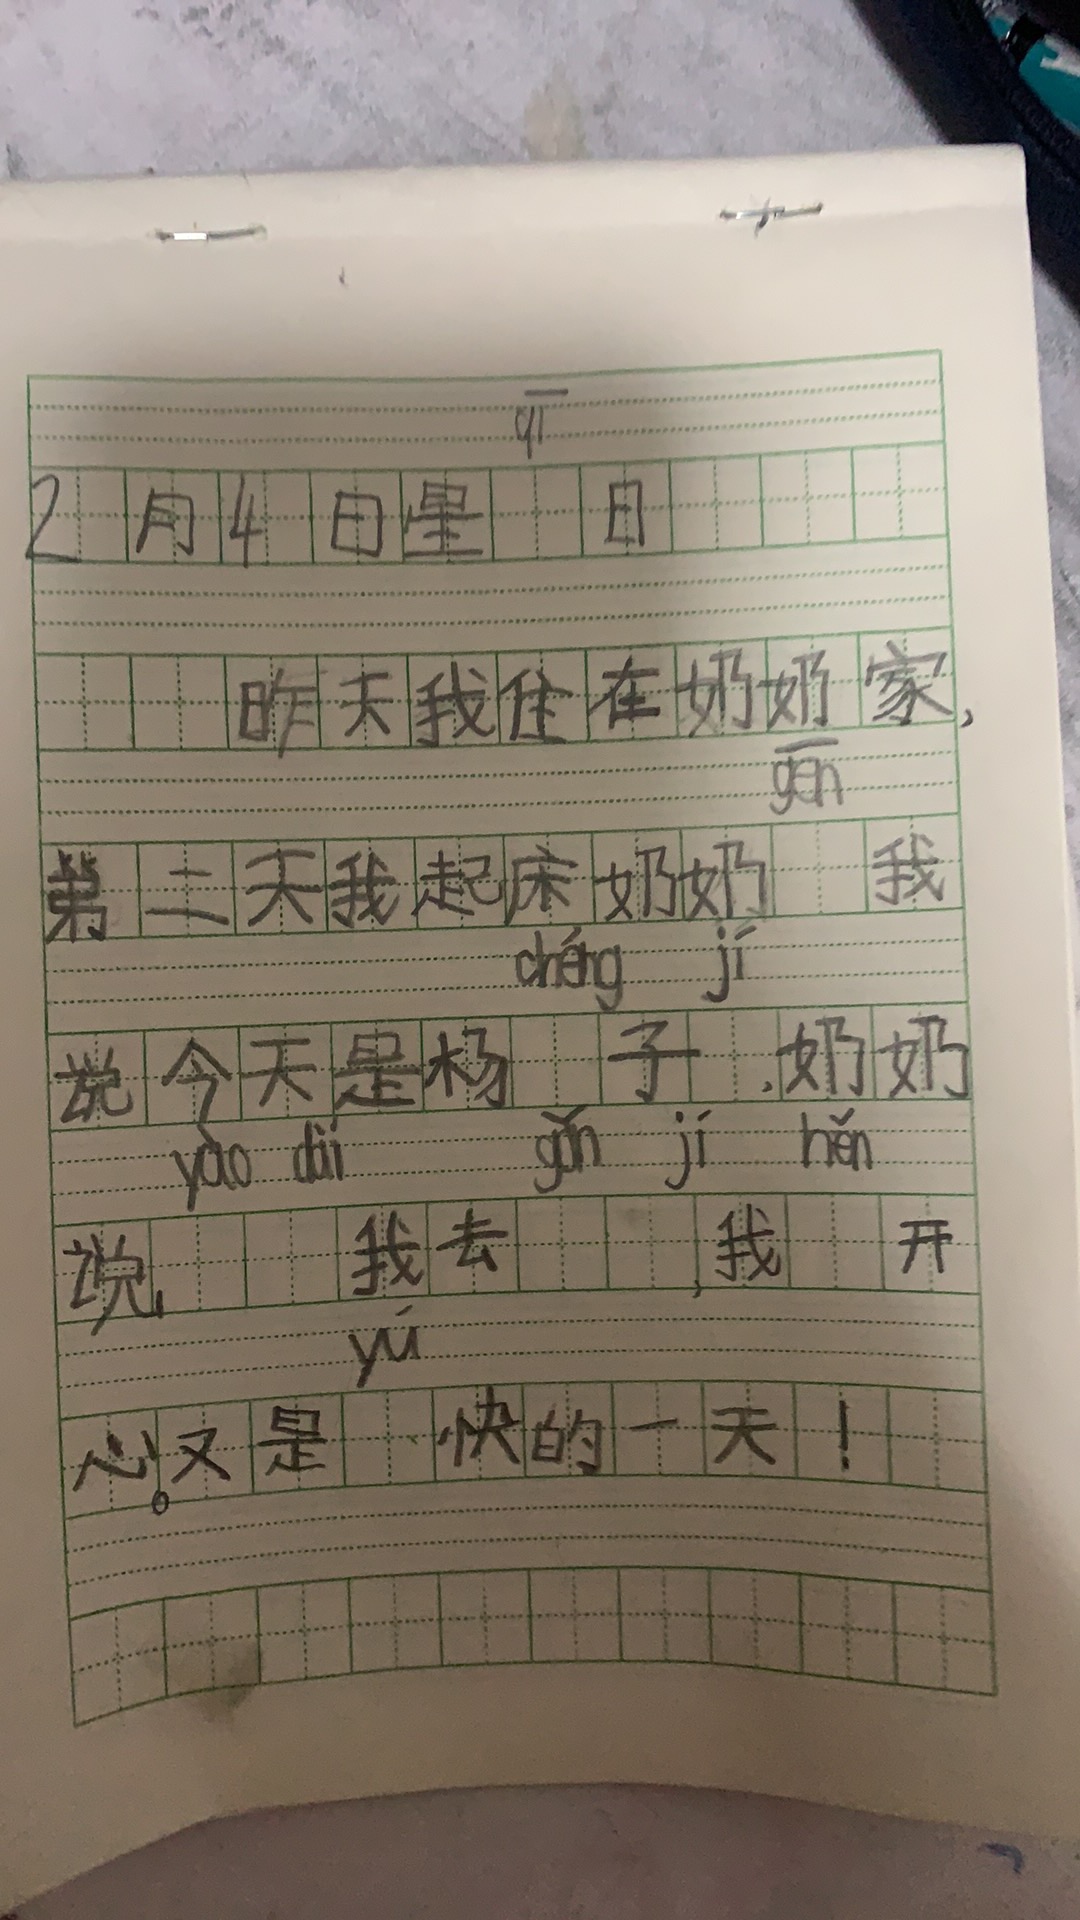 qī
2月4日星 日
昨天我住在奶奶家,
gēn
第二天我起床奶奶 我
chéng jí
说今天是杨 子 ,奶奶
yào dài gǎn jí hěn
说, 我去 ,我 开
yú
心。又是 快的一天!